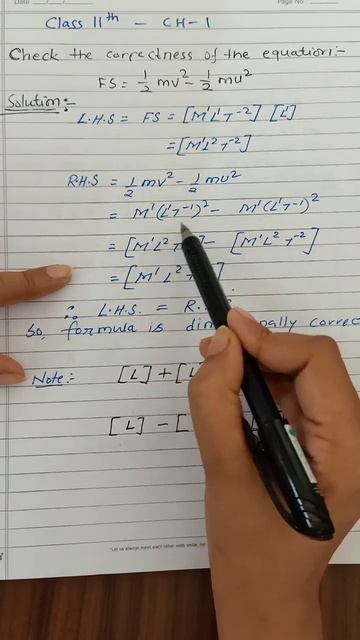 Date
Page No.
Class 11th - CH-1
Check the correctness of the equation:-
FS = 1/2 mv² - 1/2 mu²
Solution:-
L.H.S = FS = [M¹L¹T⁻²] [L¹]
= [M¹L²T⁻²]
R.H.S = 1/2 mv² - 1/2 mu²
= M¹(L¹T⁻¹)² - M¹(L¹T⁻¹)²
= [M¹L² - [M¹L²T⁻²]
= [M¹L²
∴ L.H.S. =
So, formula is correct
Note:- [L] + [L
[L] - [
"Let us always meet each other with smile, for